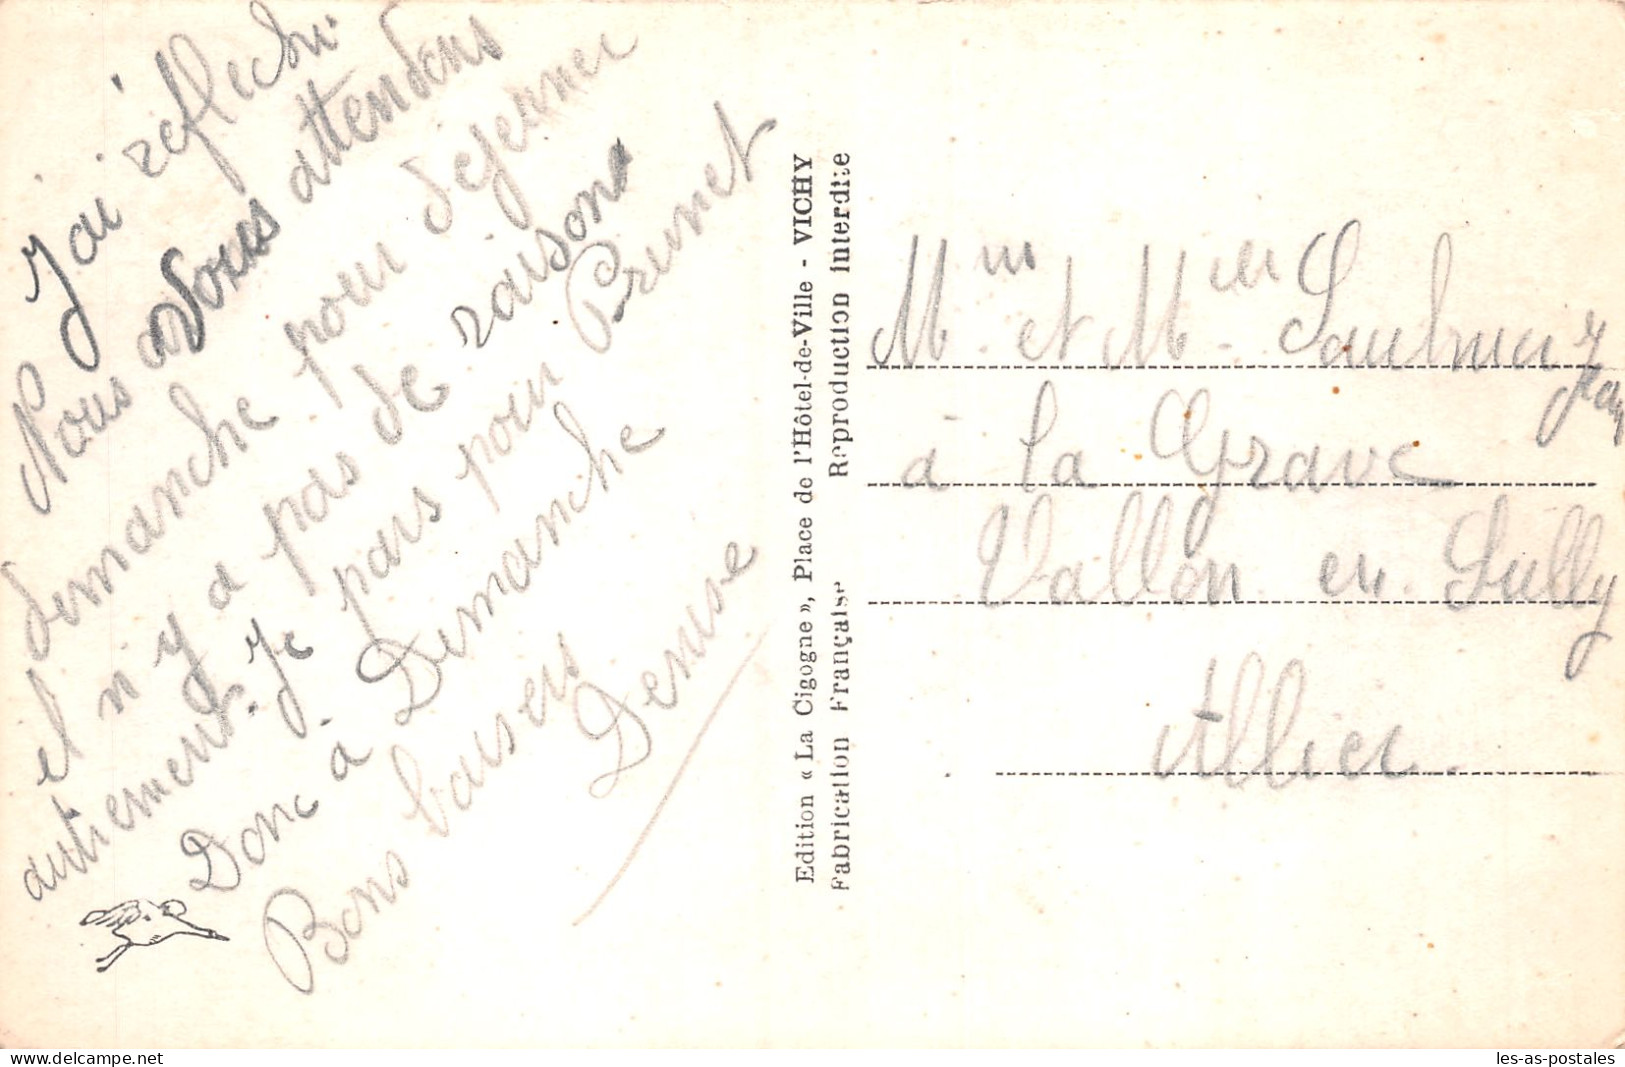 J'ai réflechi
Nous vous attendons
demanche pour déjeuner
il n y a pas de raisons
autrement. Je pars pour Prunet
Donc à Demanche
Bons baisers
Denise
Edition « La Cigogne », Place de l'Hôtel-de-Ville - VICHY
Fabrication Française Reproduction Interdite
Mm et Mr Saulnier Jean
à la Grave
Vallon en Sully
Allier.
delcampe.net
les-as-postales